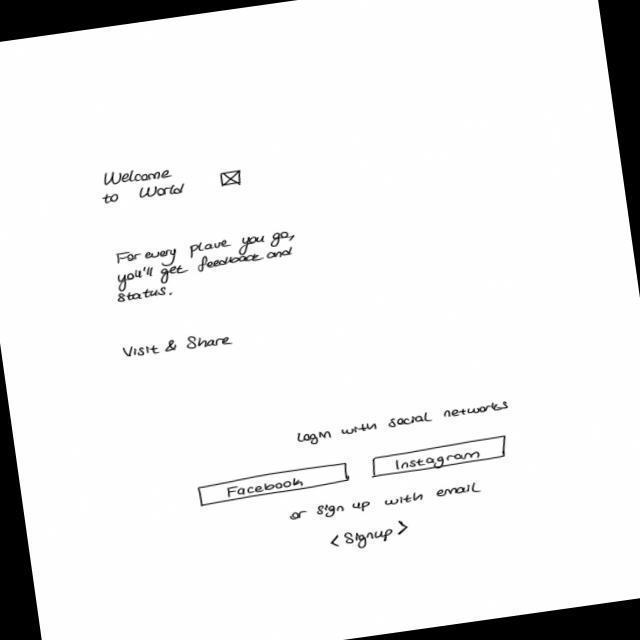 Welcome
to World
For every plave you go,
you'll get feedback and
status.
Visit & Share
Login with social networks
Facebook
Instagram
or sign up with email
<Signup>